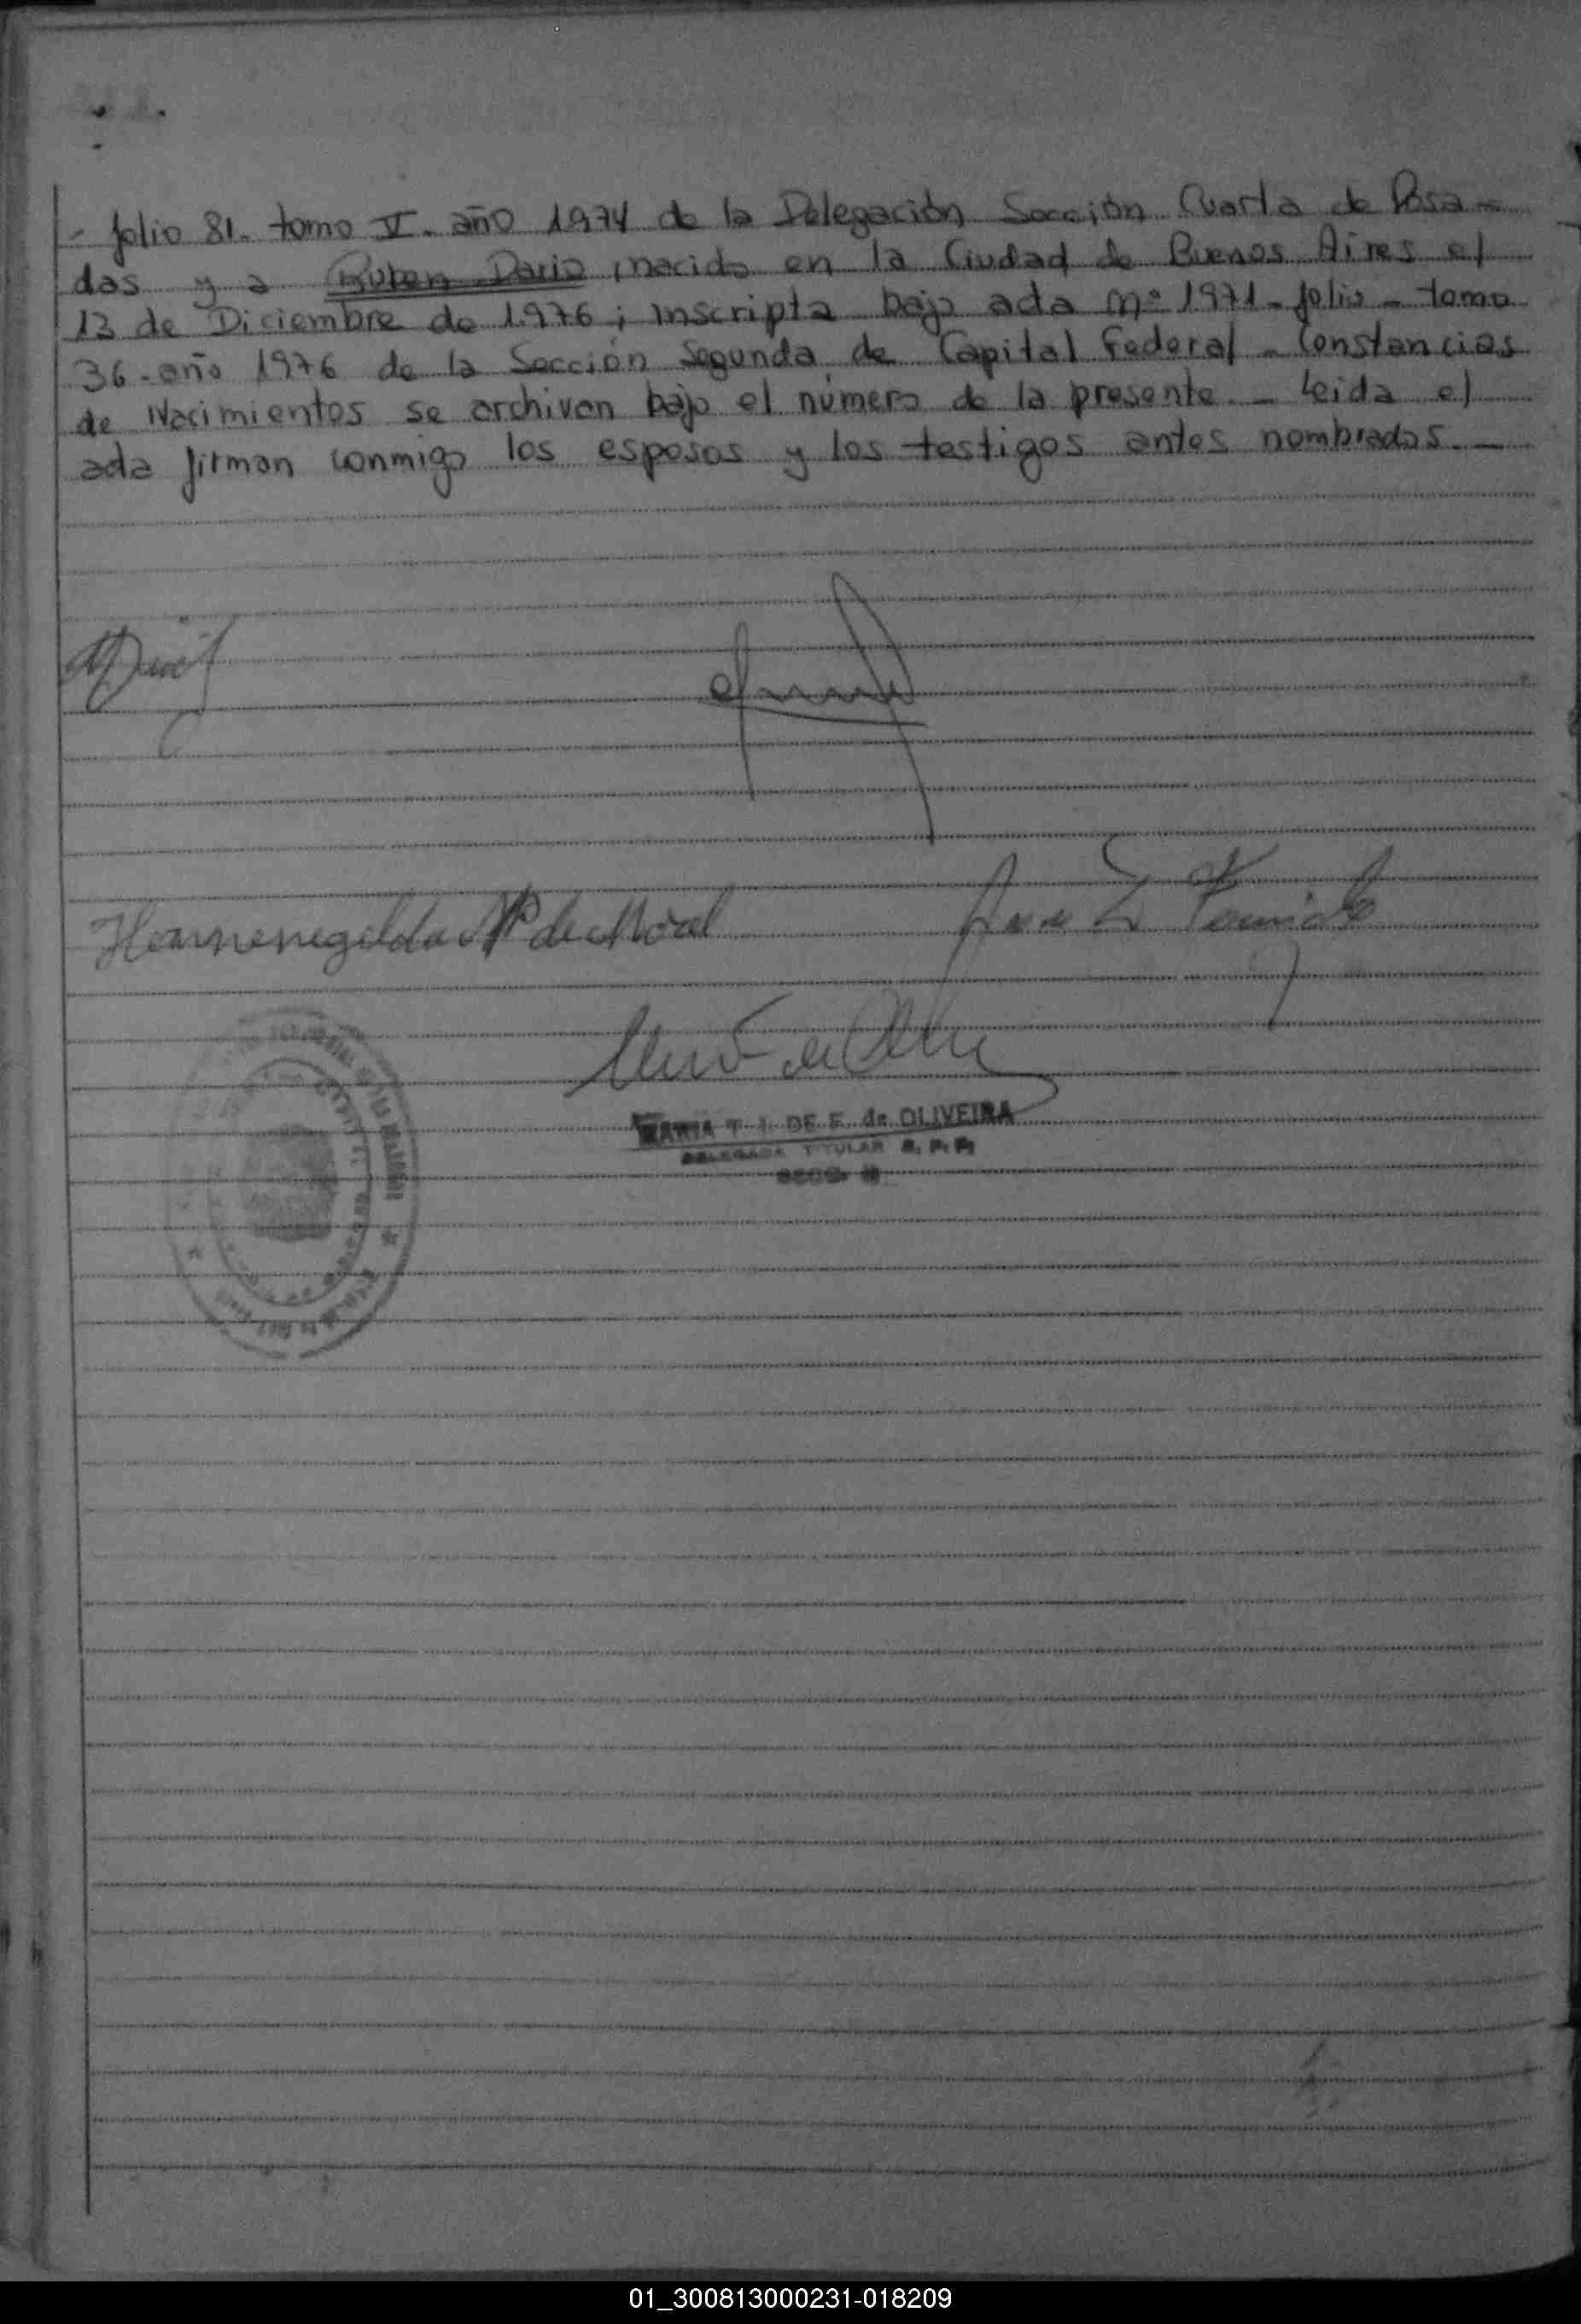 - folio 81. tomo V. año 1974 de la Delegación Sección Cuarta de Posa-
das y a Ruben Dario, nacido en la Ciudad de Buenos Aires el
13 de Diciembre de 1.976; inscripta bajo acta nº 1971 - folio - tomo
36 - año 1976 de la Sección Segunda de Capital Federal - Constancias
de Nacimientos se archivan bajo el número de la presente. - Leida el
acta firman conmigo los esposos y los testigos antes nombrados. -
Hermenegilda de Moral
MARIA T. I. DE F. de OLIVEIRA
DELEGADA TITULAR R. P. P.
01_300813000231-018209